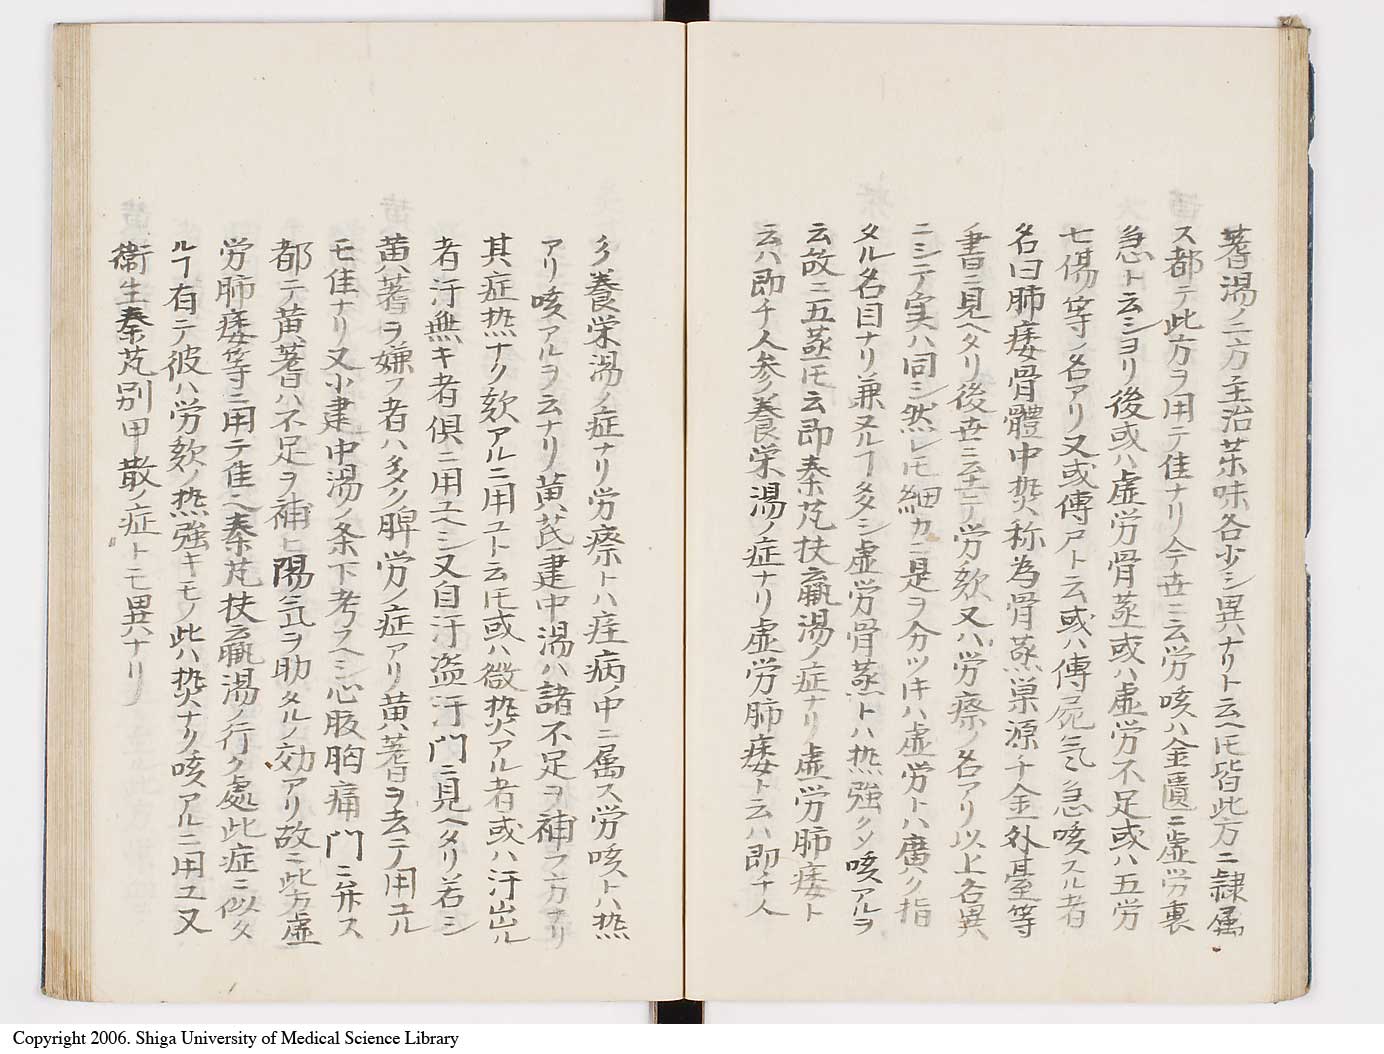 蓍湯ノ二方主治茱味各少シ異ハナリト云ヘ𪜈皆此方ニ隷属
ス都テ此方ヲ用テ佳ナリ今世ニ云労咳ハ金匱ニ虚労裏
急ト云シヨリ後或ハ虚労骨蒸或ハ虚労不足或ハ五労
七傷等ノ名アリ又或傳尸ト云或ハ傳屍氣急咳スル者
名曰肺痿骨體中熱称為骨蒸巣源千金外臺等
書ニ見ヘタリ後世ニ至テ労欬又ハ労瘵ノ名アリ以上名異
ニシテ実ハ同シ然レ𪜈細カニ是ヲ分ツキハ虚労トハ廣ク指
タル名目ナリ兼ヌルヿ多シ虚労骨蒸トハ热強クソ咳アルヲ
云故ニ五蒸𪜈云即秦芃扶羸湯ノ症ナリ虚労肺痿ト
云ハ即チ人参養栄湯ノ症ナリ虚労肺痿ト云ハ即チ人
参養栄湯ノ症ナリ労瘵トハ疰病中ニ属ス労咳トハ热
アリ咳アルヲ云ナリ黄芪建中湯ハ諸不足ヲ補フ方ナリ
其症热ナク欬アルニ用ユト云𪜈或ハ微热アル者或ハ汗出ル
者汗無キ者倶ニ用ユヘシ又自汗盗汗門ニ見ヘタリ若シ
黄蓍ヲ嫌フ者ハ多ク脾労ノ症アリ黄蓍ヲ去テ用ユル
モ佳ナリ又小建中湯ノ条下考スヘシ心腹胸痛門ニ弁ス
都テ黄蓍ハ不足ヲ補ヒ陽氣ヲ助クルノ効アリ故ニ此方虚
労肺痿等ニ用テ佳ヘ秦芃扶羸湯ノ行ク處此症ニ似タ
ルヿ有テ彼ハ労欬ノ热強キモノ此ハ热ナク咳アルニ用ユ又
衛生秦芃別甲散ノ症トモ異ハナリ